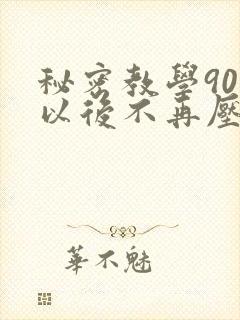 秘密教學90
以後不再壓
華不魅